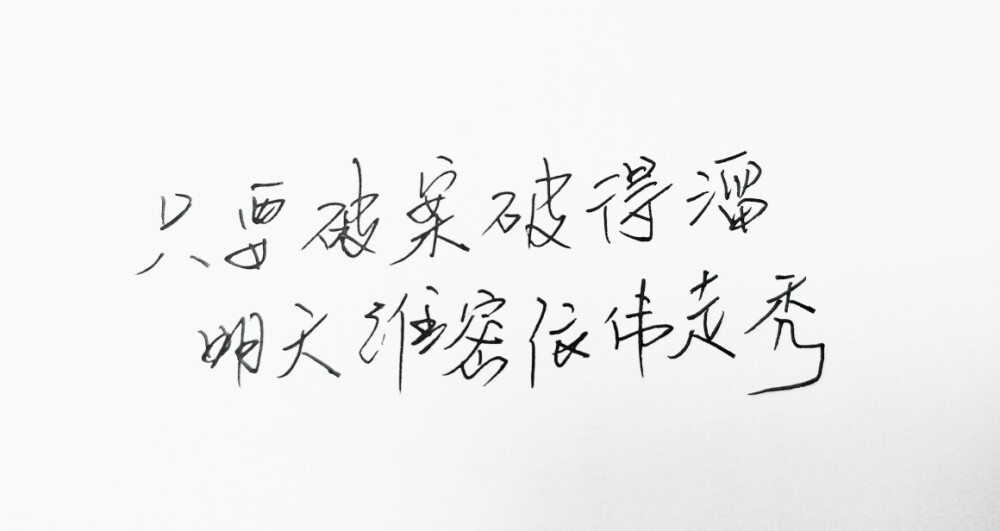 只要破案破得溜
明天维密依伟走秀